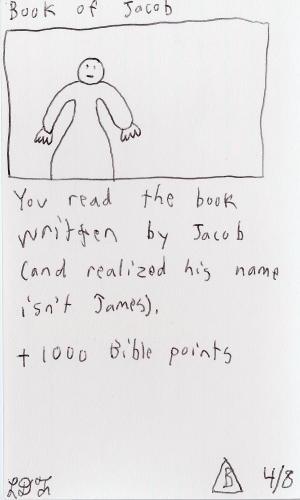 Book of Jacob
You read the book
written by Jacob
(and realized his name
isn't James).
+1000 Bible points
B 4/8